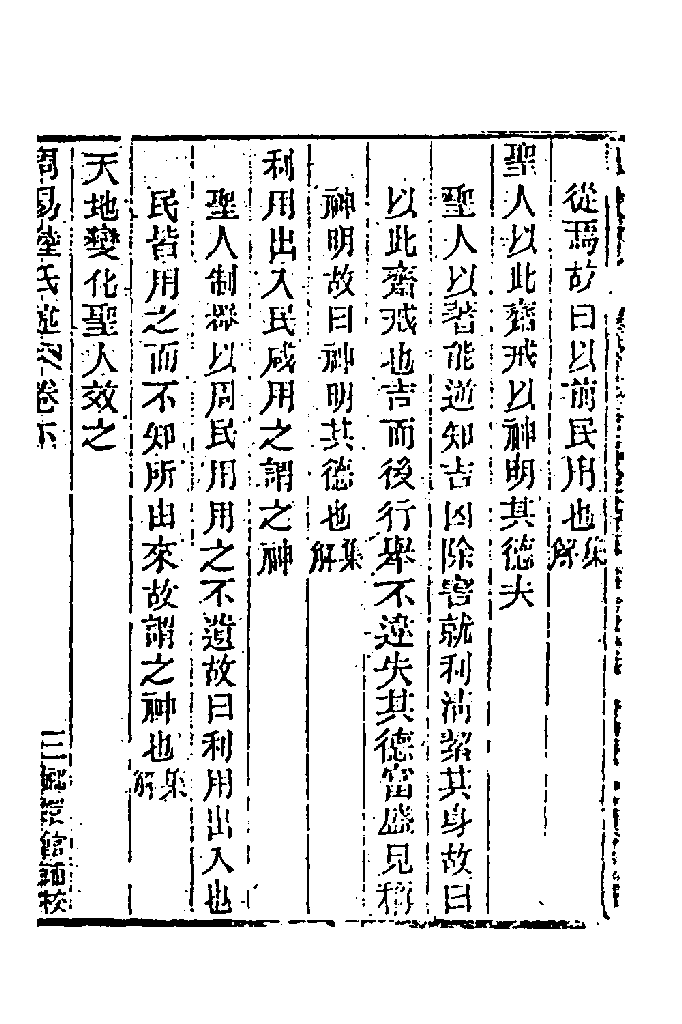 從焉故曰以前民用也集解
聖人以此齋戒以神明其德夫
聖人以蓍能逆知吉凶除害就利淸絜其身故曰
以此齋戒也吉而後行舉不違失其德富盛見稱
神明故曰神明其德也集解
利用出入民咸用之謂之神
聖人制器以周民用用之不遺故曰利用出入也
民皆用之而不知所由來故謂之神也集解
天地變化聖人效之
周易陸氏述 卷下 三